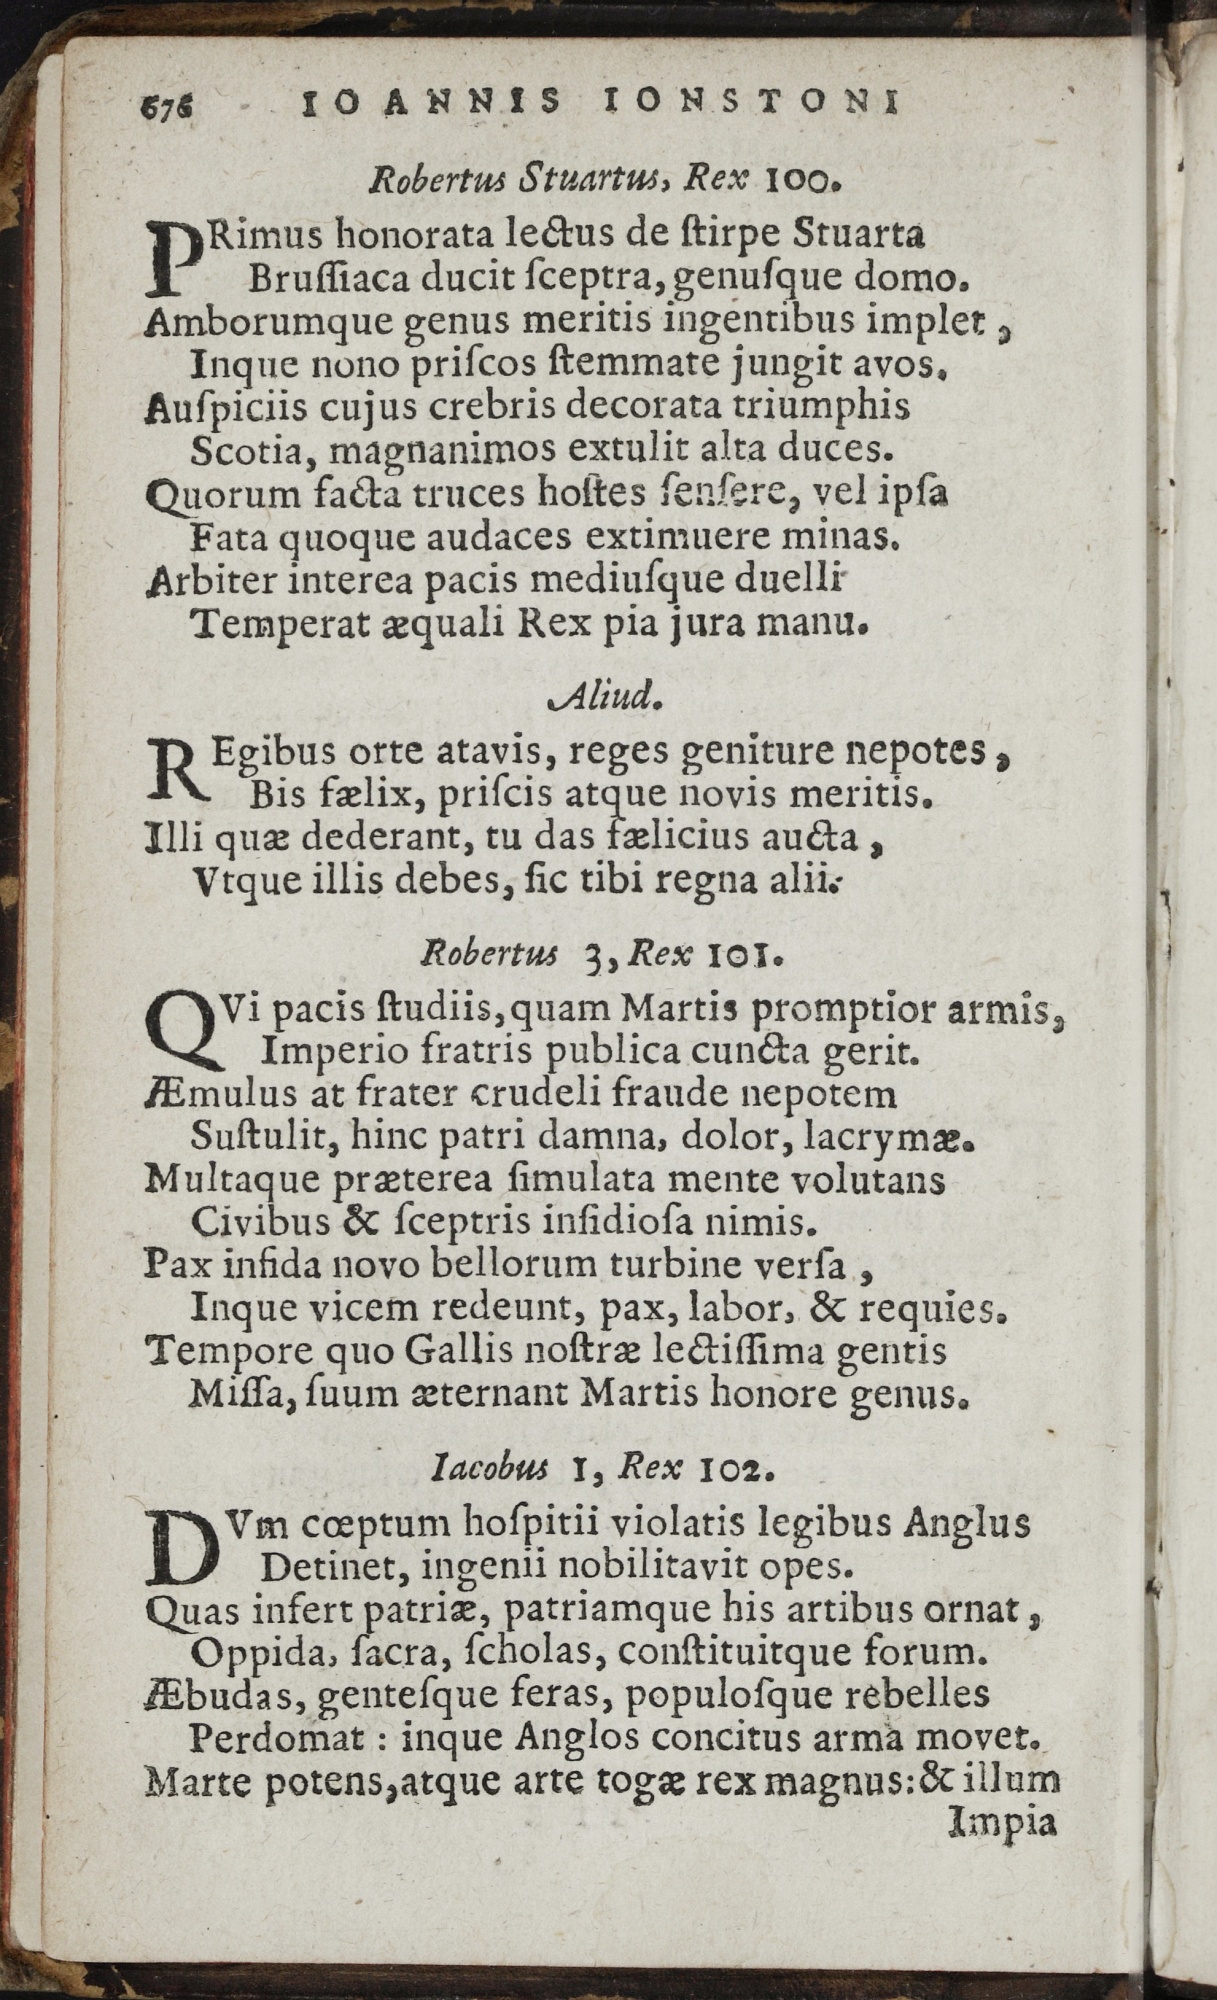 676 IOANNIS IONSTONI
Robertus Stuartus, Rex 100.
PRimus honorata lectus de ſtirpe Stuarta
Bruſſiaca ducit ſceptra, genuſque domo.
Amborumque genus meritis ingentibus implet,
Inque nono priſcos ſtemmate jungit avos.
Auſpiciis cujus crebris decorata triumphis
Scotia, magnanimos extulit alta duces.
Quorum facta truces hoſtes ſenſere, vel ipſa
Fata quoque audaces extimuere minas.
Arbiter interea pacis mediuſque duelli
Temperat æquali Rex pia jura manu.
Aliud.
REgibus orte atavis, reges geniture nepotes,
Bis fælix, priſcis atque novis meritis.
Illi quæ dederant, tu das fælicius aucta,
Vtque illis debes, ſic tibi regna alii.
Robertus 3, Rex 101.
QVi pacis ſtudiis, quam Martis promptior armis,
Imperio fratris publica cuncta gerit.
Æmulus at frater crudeli fraude nepotem
Suſtulit, hinc patri damna, dolor, lacrymæ.
Multaque præterea ſimulata mente volutans
Civibus & ſceptris inſidioſa nimis.
Pax infida novo bellorum turbine verſa,
Inque vicem redeunt, pax, labor, & requies.
Tempore quo Gallis noſtræ lectiſſima gentis
Miſſa, ſuum æternant Martis honore genus.
Iacobus 1, Rex 102.
DVm cœptum hoſpitii violatis legibus Anglus
Detinet, ingenii nobilitavit opes.
Quas infert patriæ, patriamque his artibus ornat,
Oppida, ſacra, ſcholas, conſtituitque forum.
Æbudas, genteſque feras, populoſque rebelles
Perdomat : inque Anglos concitus arma movet.
Marte potens, atque arte togæ rex magnus: & illum
Impia